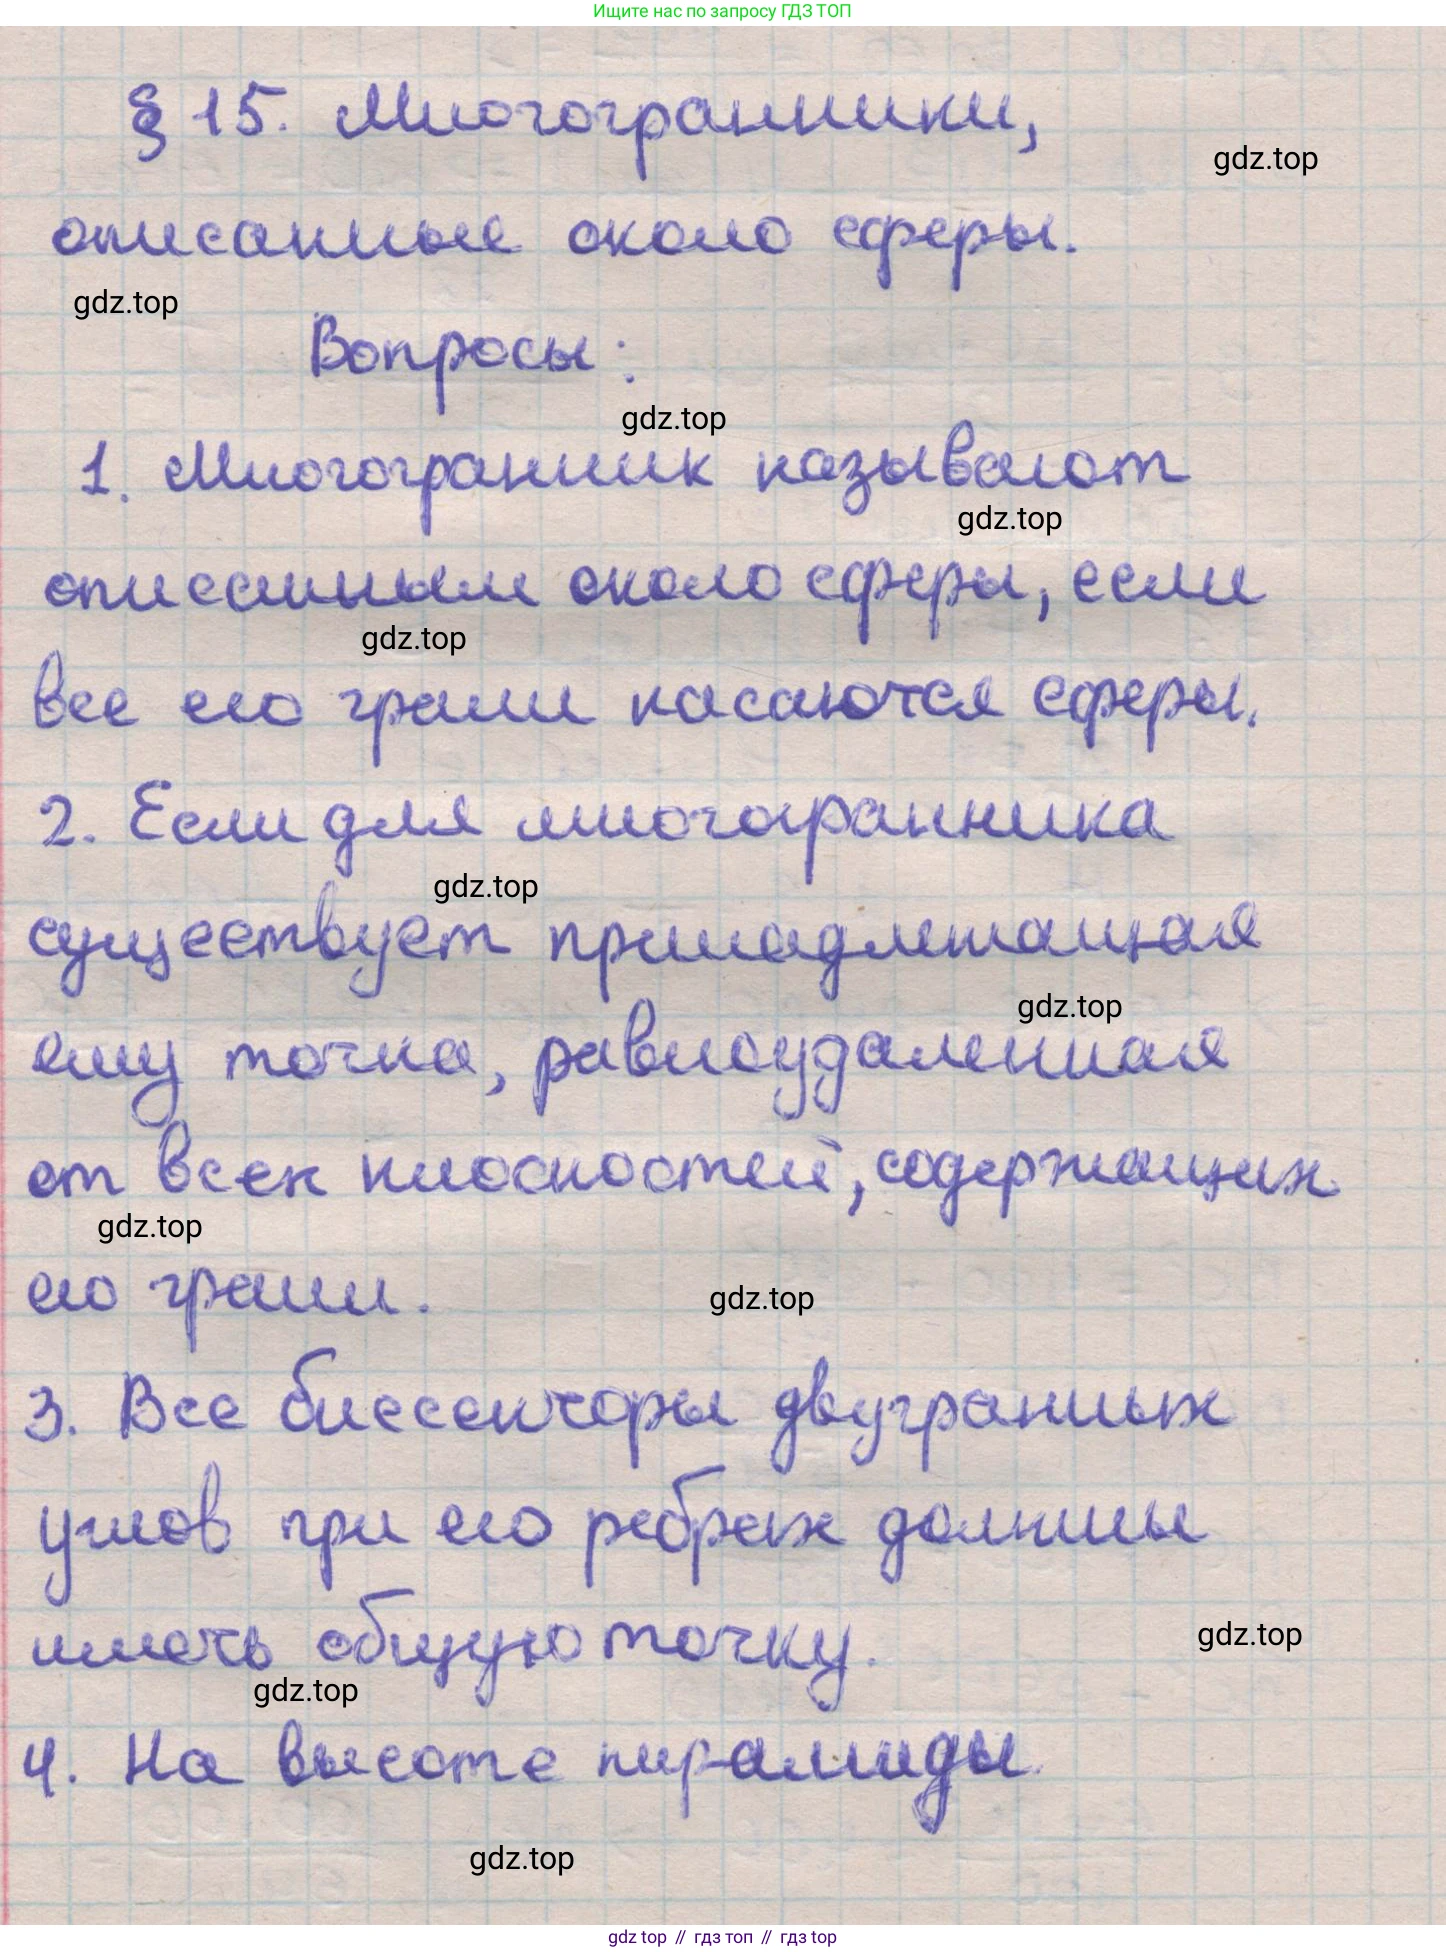 Ищите нас по запросу ГДЗ ТОП
§ 15. Многогранники,
gdz.top
описанные около сферы.
gdz.top
Вопросы:
gdz.top
1. Многогранник называют
gdz.top
описанным около сферы, если
gdz.top
все его грани касаются сферы.
2. Если для многогранника
gdz.top
существует принадлежащая
gdz.top
ему точка, равноудаленная
от всех плоскостей, содержащих
gdz.top
его грани.
gdz.top
3. Все биссекторы двугранных
углов при его ребрах должны
иметь общую точку.
gdz.top
gdz.top
4. На высоте пирамиды.
gdz.top
gdz top // гдз топ // гдз top